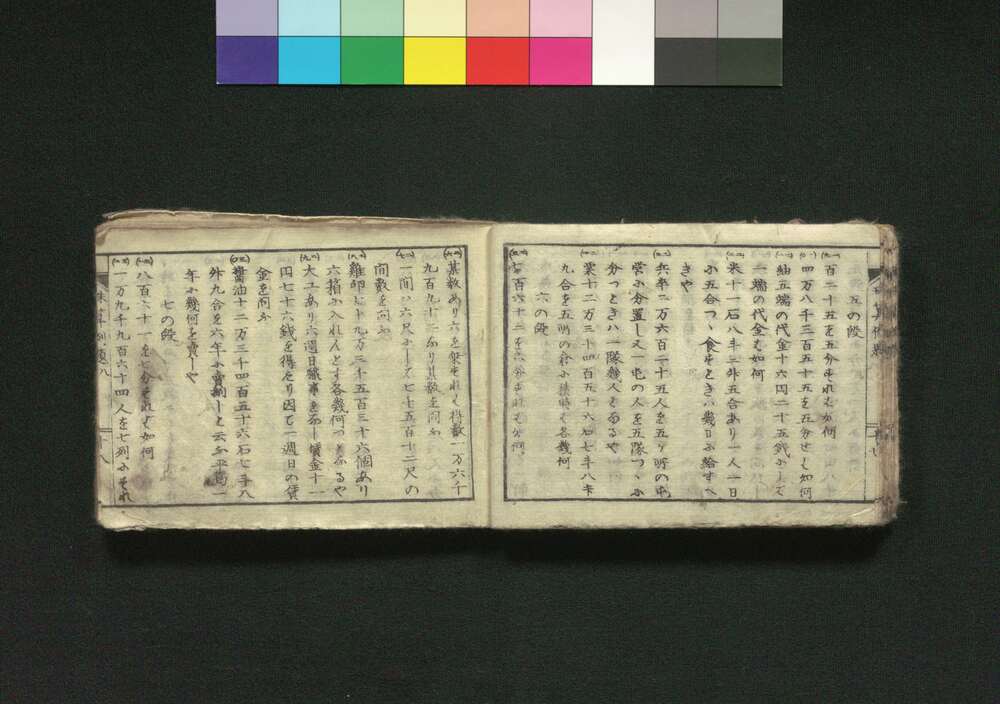 五の段
百二十五を五分すれも如何
四万八千三百五十五を五分せしも如何
紬五端の代金十六円二十五銭ふして
一端の代金も如何
米十一石八斗三升五合あり一人一日
ふ五合つゝ食するときハ幾日ふ給すへ
きや
兵卒二万六百二十五人を五ヶ所の屯
営ふ分置し又一屯の人を五隊つゝふ
分つときハ一隊幾人となるや
粟十二万三千四百五十六石七斗八升
九合を五
の倉ふ
各幾何
六の段
百六十二を六分すれも如何
基数あり六を乗すれも得数一万六千
九百九十二なり其数を問ふ
一間ハ六尺ふして七千五百十二尺の
間数を問ふ
雞卵二十九万三千五百三十六個あり
六箱ふ入れんとす各幾何つゝなるや
大工あり六週日職事をなし賃金十一
円七十六銭を得たり因て一週日の賃
金を問ふ
醤油十二万三千四百五十六石七斗八
升九合を六年ふ賣納しと云ふ平均一
年ふ幾何を賣しや
七の段
八百六十一を七分すれも如何
一万九千九百六十四人を七列ふすれ